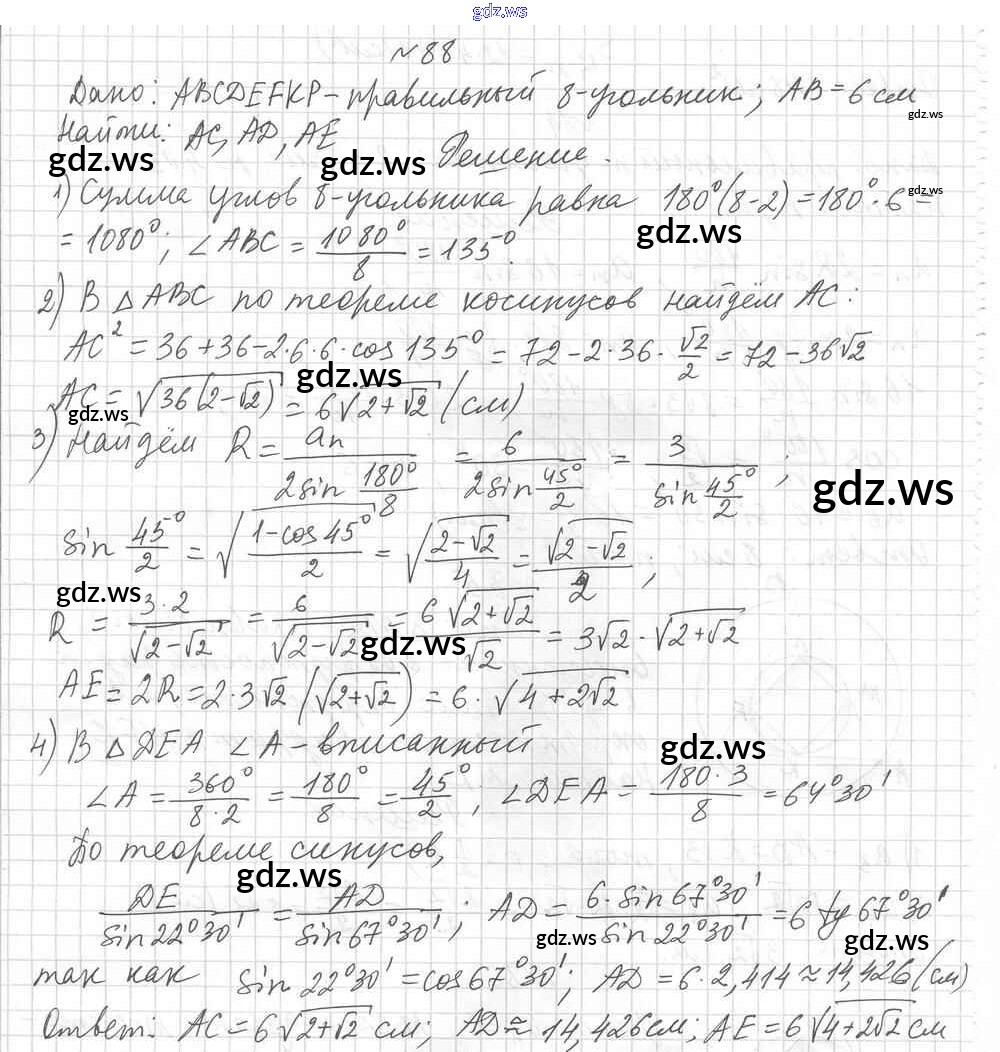 gdz.ws
№88
Дано: ABCDEFKP - правильный 8-угольник; AB = 6 см
gdz.ws
Найти: AC, AD, AE
gdz.ws gdz.ws
Решение.
1) Сумма углов 8-угольника равна 180°(8-2) = 180°·6 =
gdz.ws
= 1080°; ∠ABC = 1080°/8 = 135°.
gdz.ws
2) В △ABC по теореме косинусов найдём AC:
AC² = 36+36-2·6·6·cos 135° = 72-2·36·√2/2 = 72-36√2
gdz.ws
AC = √(36(2-√2)) = 6√(2+√2) (см)
gdz.ws
3) Найдём R = an/(2sin 180°/8) = 6/(2sin 45°/2) = 3/(sin 45°/2);
gdz.ws
sin 45°/2 = √((1-cos 45°)/2) = √((2-√2)/4) = √(2-√2)/2;
gdz.ws
R = 3·2/√(2-√2) = 6/√(2-√2) = 6√(2+√2)/√2 = 3√2·√(2+√2)
gdz.ws
AE = 2R = 2·3√2 (√(2+√2)) = 6·√(4+2√2)
4) В △DEA ∠A - вписанный
gdz.ws
∠A = 360°/(8·2) = 180°/8 = 45°/2, ∠DEA = 180·3/8 = 64°30'
По теореме синусов,
gdz.ws
DE/sin 22°30' = AD/sin 67°30'; AD = 6·sin 67°30'/sin 22°30' = 6 tg 67°30'
gdz.ws gdz.ws
так как sin 22°30' = cos 67°30'; AD = 6·2,414 ≈ 14,426 (см)
Ответ: AC = 6√(2+√2) см; AD ≈ 14,426 см; AE = 6√(4+2√2) см
gdz.ws